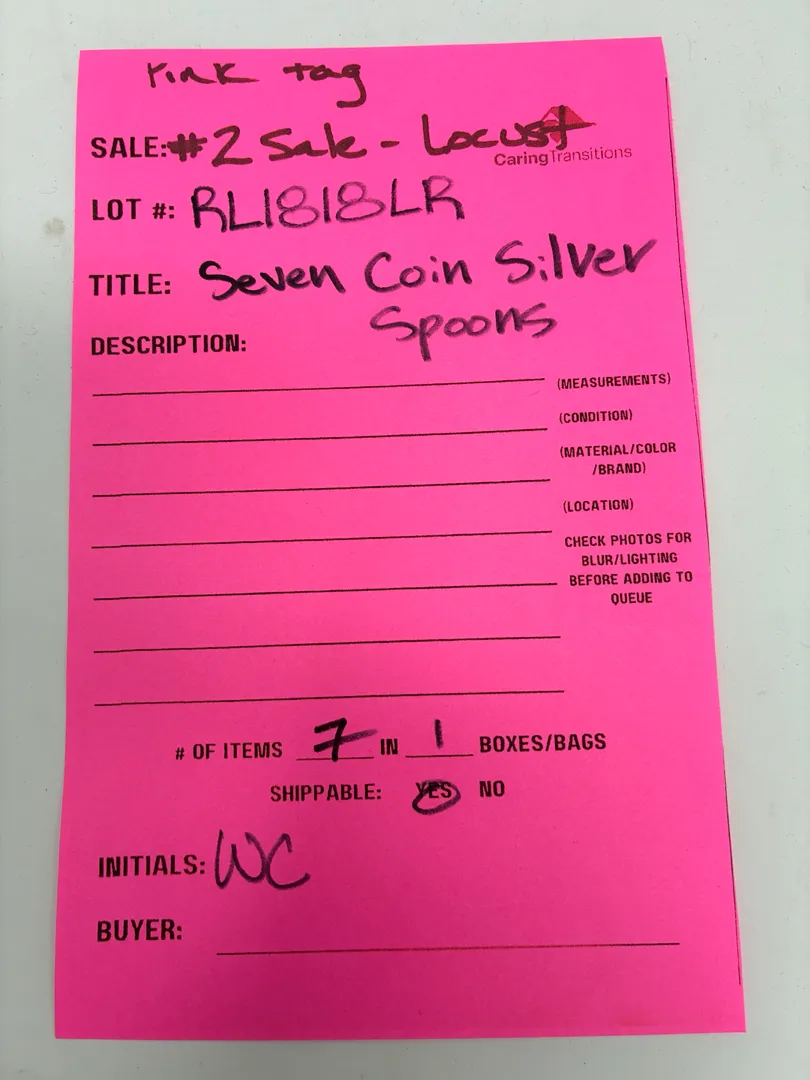 Pink tag
SALE: #2 Sale - Locust
CaringTransitions
LOT #: RL1818LR
TITLE: Seven Coin Silver
Spoons
DESCRIPTION:
(MEASUREMENTS)
(CONDITION)
(MATERIAL/COLOR
/BRAND)
(LOCATION)
CHECK PHOTOS FOR
BLUR/LIGHTING
BEFORE ADDING TO
QUEUE
# OF ITEMS 7 IN 1 BOXES/BAGS
SHIPPABLE: YES NO
INITIALS: WC
BUYER: